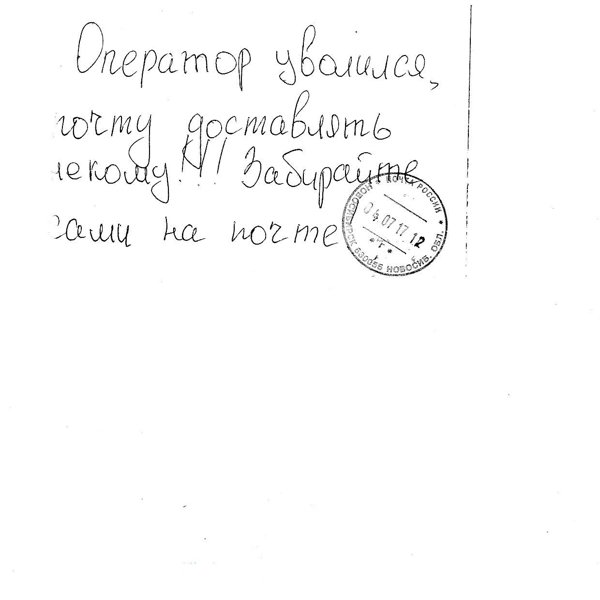 Оператор уволился,
почту доставлять
некому!!! Забирайте
сами на почте
ПОЧТА РОССИИ
НОВОСИБИРСК 630056 НОВОСИБ. ОБЛ.
04.07.17.12